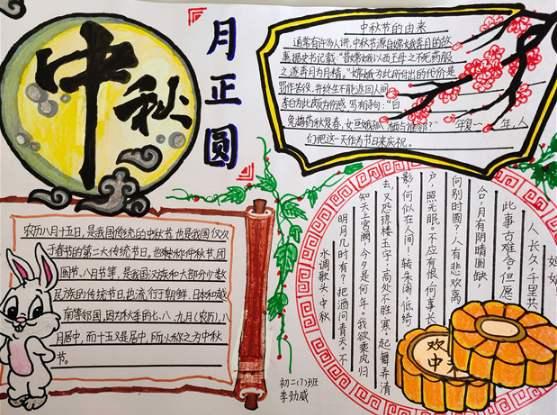 中秋
月正圆
中秋节的由来
通常有许多人讲,中秋节源自嫦娥奔月的故
事。据史书记载:"昔嫦娥以西王母之不死药服
之,遂奔月为月精。"嫦娥为此所付出的代价是
罚作苦役,并终生不能返回人间。
李白为此颇为伤感,写有诗句:"白
兔捣药秋复春,
们把这一天作为节日来庆祝。
农历八月十五日,是我国传统的中秋节,也是我国仅次
于春节的第二大传统节日。也
团圆节、八月节等,是我国汉族和大部分少数
民族的传统节日,也流行于朝鲜、日本和越
南等邻国,因为秋季的七、八、九月(农历),八
月居中,而十五又是居中,所以称之为中秋
节。
水调歌头 中秋
明月几时有?把酒问青天。不
知天上宫阙,今夕是何年。我欲乘风归
去,又恐琼楼玉宇,高处不胜寒。起舞弄清
影,何似在人间!转朱阁,低绮
户,照无眠。不应有恨,何事长
向别时圆?人有悲欢离
合,月有阴晴圆缺,
此事古难全。但愿
人长久,千里共
欢
中
初二(7)班
李劲威